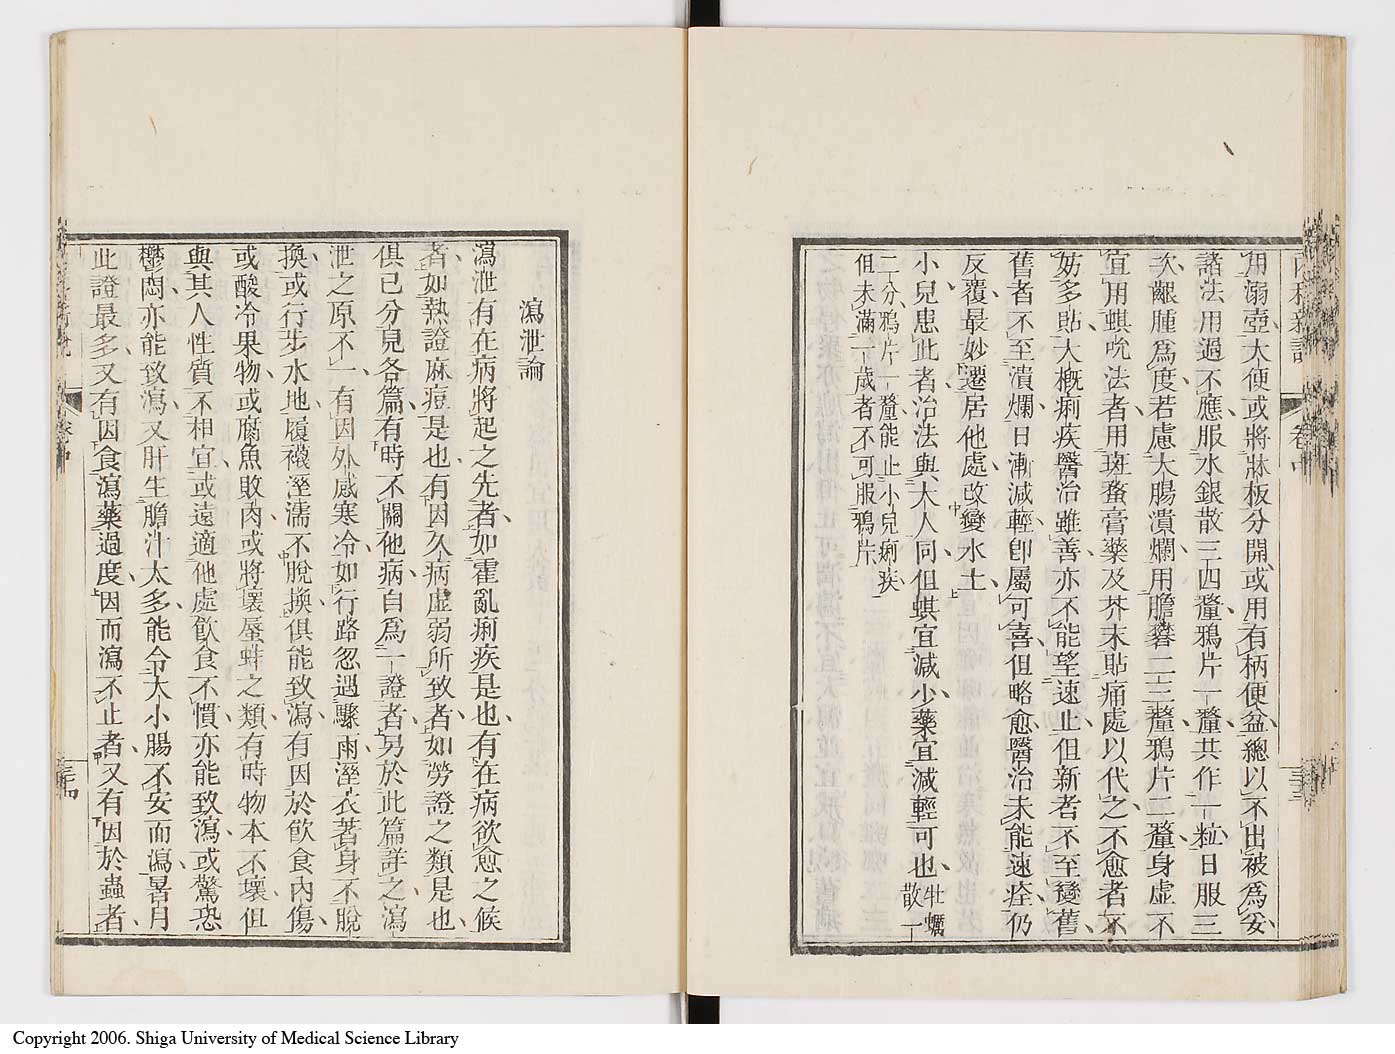 內科新說 卷中
用溺壺大便或將牀板分開或用有柄便盆總以不出被爲妥
諸法用過不應服水銀散三四釐鴉片一釐共作一粒日服三
次齦腫爲度若慮大腸潰爛用膽礬二三釐鴉片二釐身虛不
宜用蜞吮法者用斑蝥膏藥及芥末貼痛處以代之不愈者不
妨多貼大概痢疾醫治雖善亦不能望速止但新者不至變舊
舊者不至潰爛日漸減輕卽屬可喜但略愈醫治未能速痊仍
反覆最妙遷居他處改變水土
小兒患此者治法與大人同但蜞宜減少藥宜減輕可也牡蠣散一
二分鴉片一釐能止小兒痢疾
但未滿一歲者不可服鴉片
三三
瀉泄論
瀉泄有在病將起之先者如霍亂痢疾是也有在病欲愈之候
者如熱證麻痘是也有因久病虛弱所致者如勞證之類是也
俱已分見各篇有時不關他病自爲一證者另於此篇詳之瀉
泄之原不一有因外感寒冷如行路忽遇驟雨溼衣著身不脫
換或行步水地履襪溼濡不脫換俱能致瀉有因於飮食內傷
或酸冷果物或腐魚敗肉或將壞蜃蚌之類有時物本不壞但
與其人性質不相宜或遠適他處飮食不慣亦能致瀉或驚恐
鬱悶亦能致瀉又肝生膽汁太多能令大小腸不安而瀉暑月
此證最多又有因食瀉藥過度因而瀉不止者又有因於蟲者
Copyright 2006. Shiga University of Medical Science Library